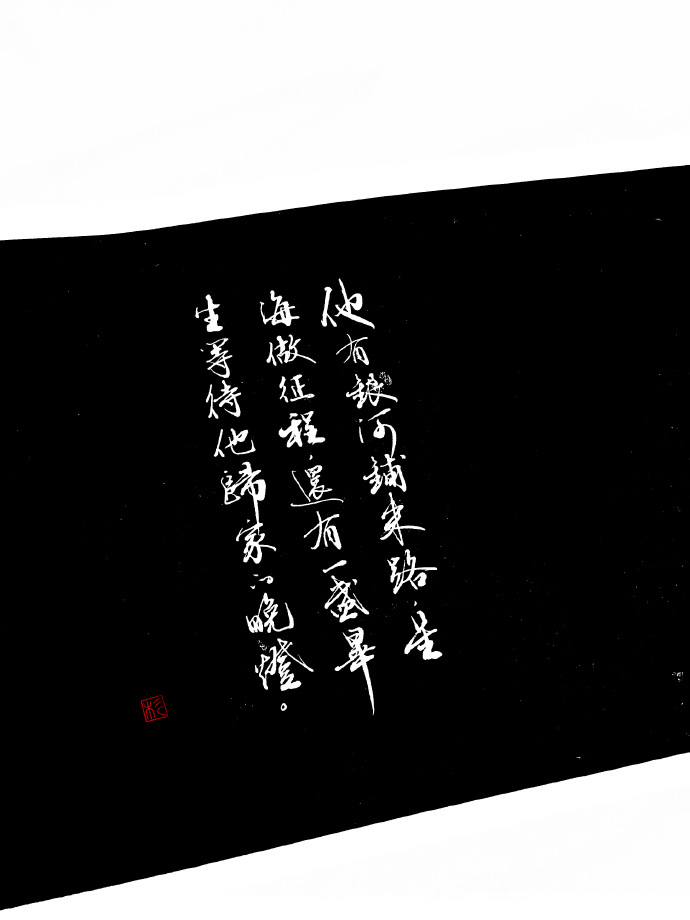 他有銀河鋪來路，星
海做征程，還有一盞畢
生等待他歸家的晚燈。
杉